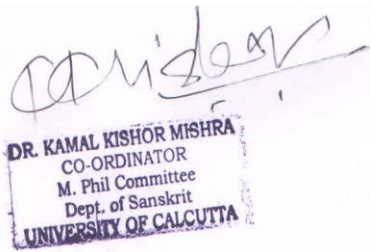 DR. KAMAL KISHOR MISHRA
CO-ORDINATOR
M. Phil Committee
Dept. of Sanskrit
UNIVERSITY OF CALCUTTA